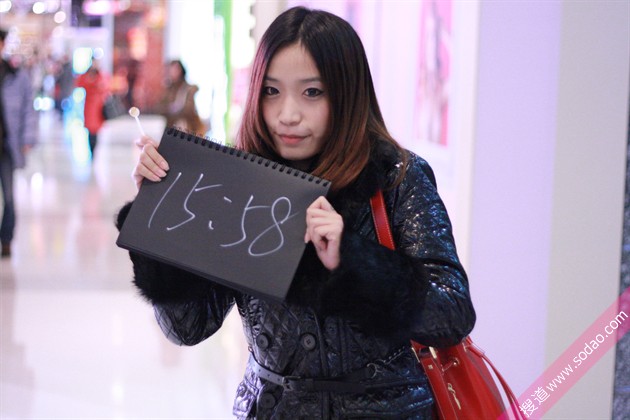 15:58
搜道www.sodao.com